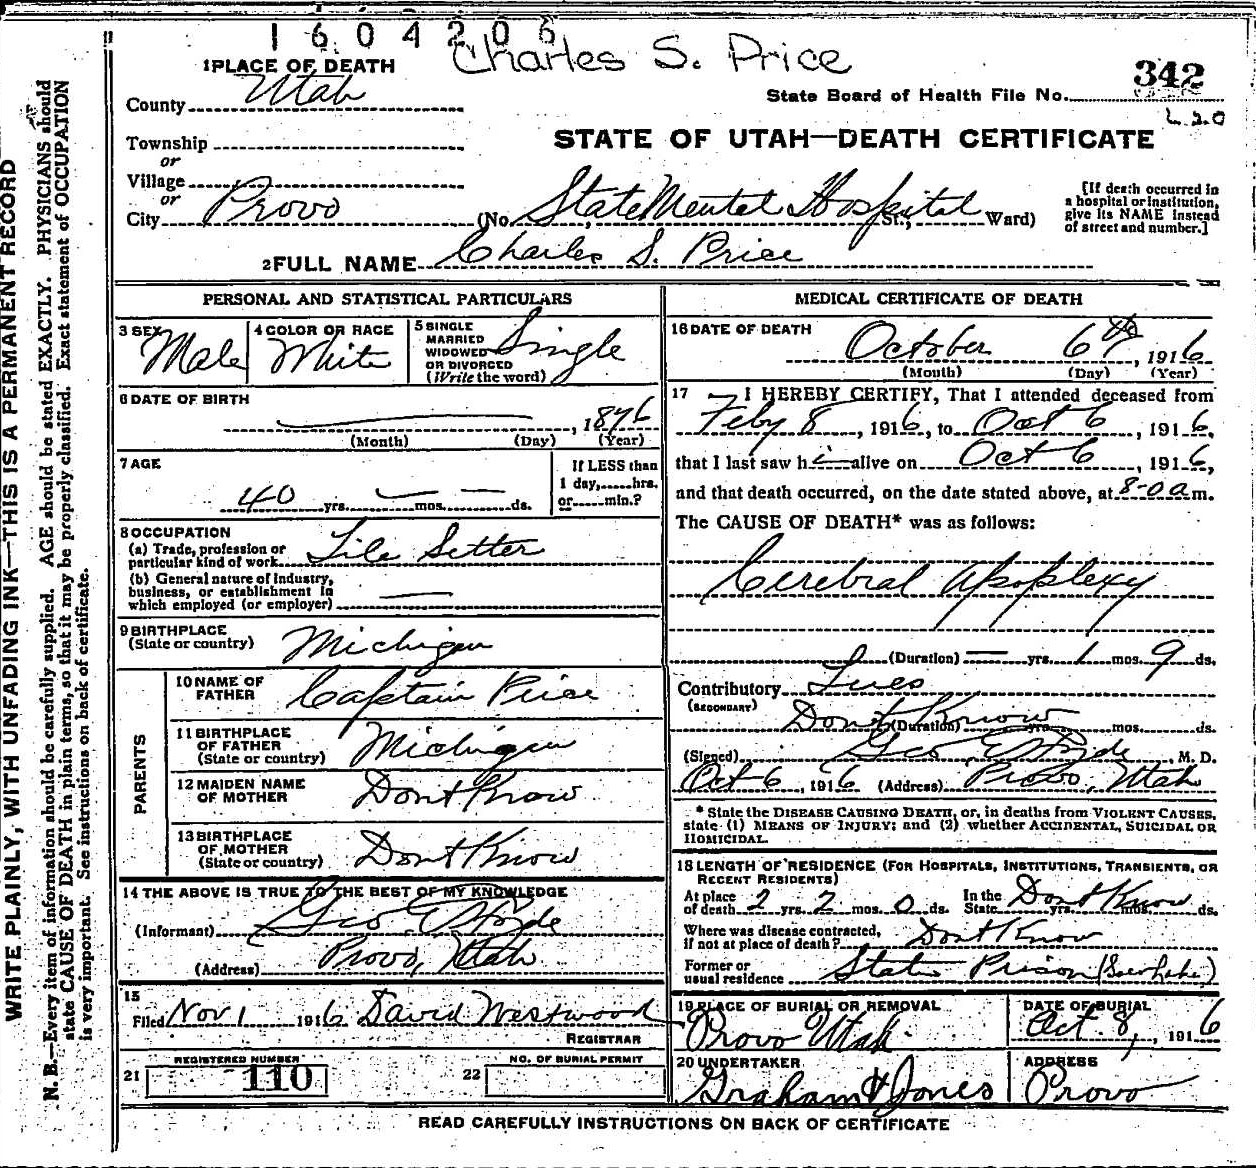 1604206
Charles S. Price
1 PLACE OF DEATH
County Utah
342
State Board of Health File No.
Township
or
STATE OF UTAH—DEATH CERTIFICATE
Village
or
City Provo (No. State Mental Hospital St.; Ward)
[If death occurred in
a hospital or institution,
give its NAME instead
of street and number.]
2 FULL NAME Charles S. Price
PERSONAL AND STATISTICAL PARTICULARS
3 SEX
Male
4 COLOR OR RACE
White
5 SINGLE
MARRIED
WIDOWED
OR DIVORCED
(Write the word)
Single
6 DATE OF BIRTH
, 1876
(Month) (Day) (Year)
7 AGE
40 yrs. mos. ds.
If LESS than
1 day,.....hrs.
or.....min.?
8 OCCUPATION
(a) Trade, profession or
particular kind of work Tile Setter
(b) General nature of industry,
business, or establishment in
which employed (or employer)
9 BIRTHPLACE
(State or country) Michigan
PARENTS
10 NAME OF
FATHER Captain Price
11 BIRTHPLACE
OF FATHER
(State or country) Michigan
12 MAIDEN NAME
OF MOTHER Dont Know
13 BIRTHPLACE
OF MOTHER
(State or country) Dont Know
14 THE ABOVE IS TRUE TO THE BEST OF MY KNOWLEDGE
(Informant) Geo E Hyde
(Address) Provo, Utah
15
Filed Nov 1 1916 David Westwood
REGISTRAR
REGISTERED NUMBER
21 110
NO. OF BURIAL PERMIT
22
MEDICAL CERTIFICATE OF DEATH
16 DATE OF DEATH
October 6th, 1916
(Month) (Day) (Year)
17 I HEREBY CERTIFY, That I attended deceased from
Feby 8, 1916, to Oct 6, 1916,
that I last saw hi— alive on Oct 6, 1916,
and that death occurred, on the date stated above, at 8-00 a m.
The CAUSE OF DEATH* was as follows:
Cerebral Apoplexy
(Duration) — yrs. 1 mos. 9 ds.
Contributory Lues
(SECONDARY)
Dont Know
(Duration) yrs. mos. ds.
(Signed) Geo E Hyde, M. D.
Oct 6, 1916 (Address) Provo, Utah
* State the DISEASE CAUSING DEATH, or, in deaths from VIOLENT CAUSES,
state (1) MEANS OF INJURY; and (2) whether ACCIDENTAL, SUICIDAL OR
HOMICIDAL.
18 LENGTH OF RESIDENCE (FOR HOSPITALS, INSTITUTIONS, TRANSIENTS, OR
RECENT RESIDENTS)
At place
of death 2 yrs. 2 mos. 0 ds.
In the
State Dont Know yrs. mos. ds.
Where was disease contracted,
if not at place of death? Dont Know
Former or
usual residence State Prison (Salt Lake)
19 PLACE OF BURIAL OR REMOVAL
Provo Utah.
DATE OF BURIAL
Oct. 8, 1916
20 UNDERTAKER
Graham & Jones
ADDRESS
Provo
READ CAREFULLY INSTRUCTIONS ON BACK OF CERTIFICATE
WRITE PLAINLY, WITH UNFADING INK—THIS IS A PERMANENT RECORD
N. B.—Every item of information should be carefully supplied. AGE should be stated EXACTLY. PHYSICIANS should
state CAUSE OF DEATH in plain terms, so that it may be properly classified. Exact statement of OCCUPATION
is very important. See instructions on back of certificate.